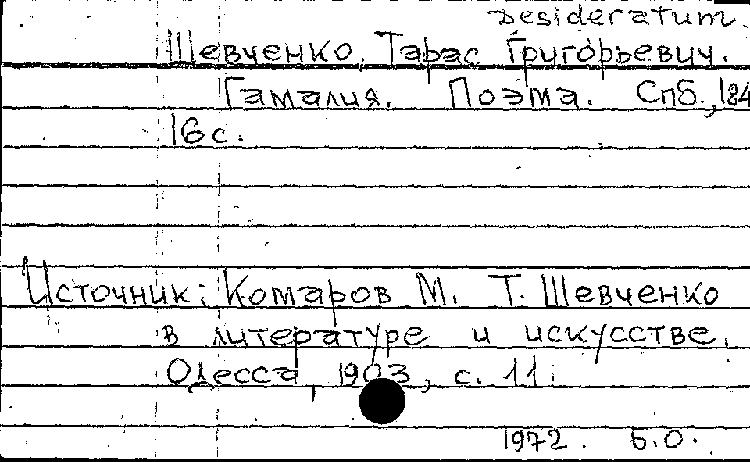 Desideratum.
Шевченко, Тарас Григорьевич.
Гамалия. Поэма. Спб., 184
16 с.
Источник: Комаров М. Т. Шевченко
в литературе и искусстве.
Одесса, 1903, с. 11.
1972. Б.О.